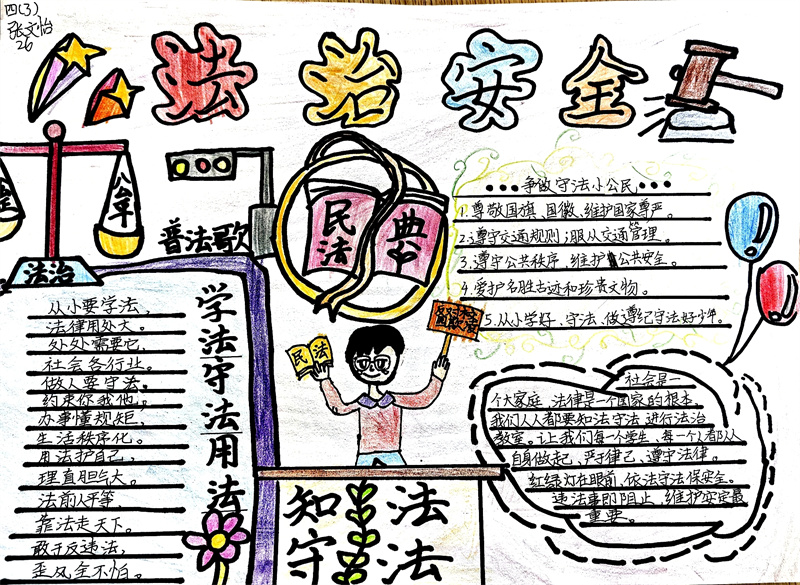 四(3)
张文怡
26
法治安全
公平
法治
普法歌
从小要学法,
法律用处大。
处处需要它,
社会各行业。
做人要守法,
约束你我他。
办事懂规矩,
生活秩序化。
用法护自己,
理直胆气大。
法前人平等,
靠法走天下。
敢于反违法,
歪风全不怕。
学法守法用法
民法典
民法
知法
守法
•••争做守法小公民•••
1.尊敬国旗、国徽、维护国家尊严。
2.遵守交通规则;服从交通管理。
3.遵守公共秩序,维护公共安全。
4.爱护名胜古迹和珍贵文物。
5.从小学好、守法、做遵纪守法好少年。
社会是一
个大家庭,法律是一个国家的根本。
我们人人都要知法守法,进行法治
教室。让我们每一个学生、每一个人都从
自身做起,严于律己、遵守法律。
红绿灯在眼前,依法守法保安全。
违法事即阻止,维护安定最
重要。